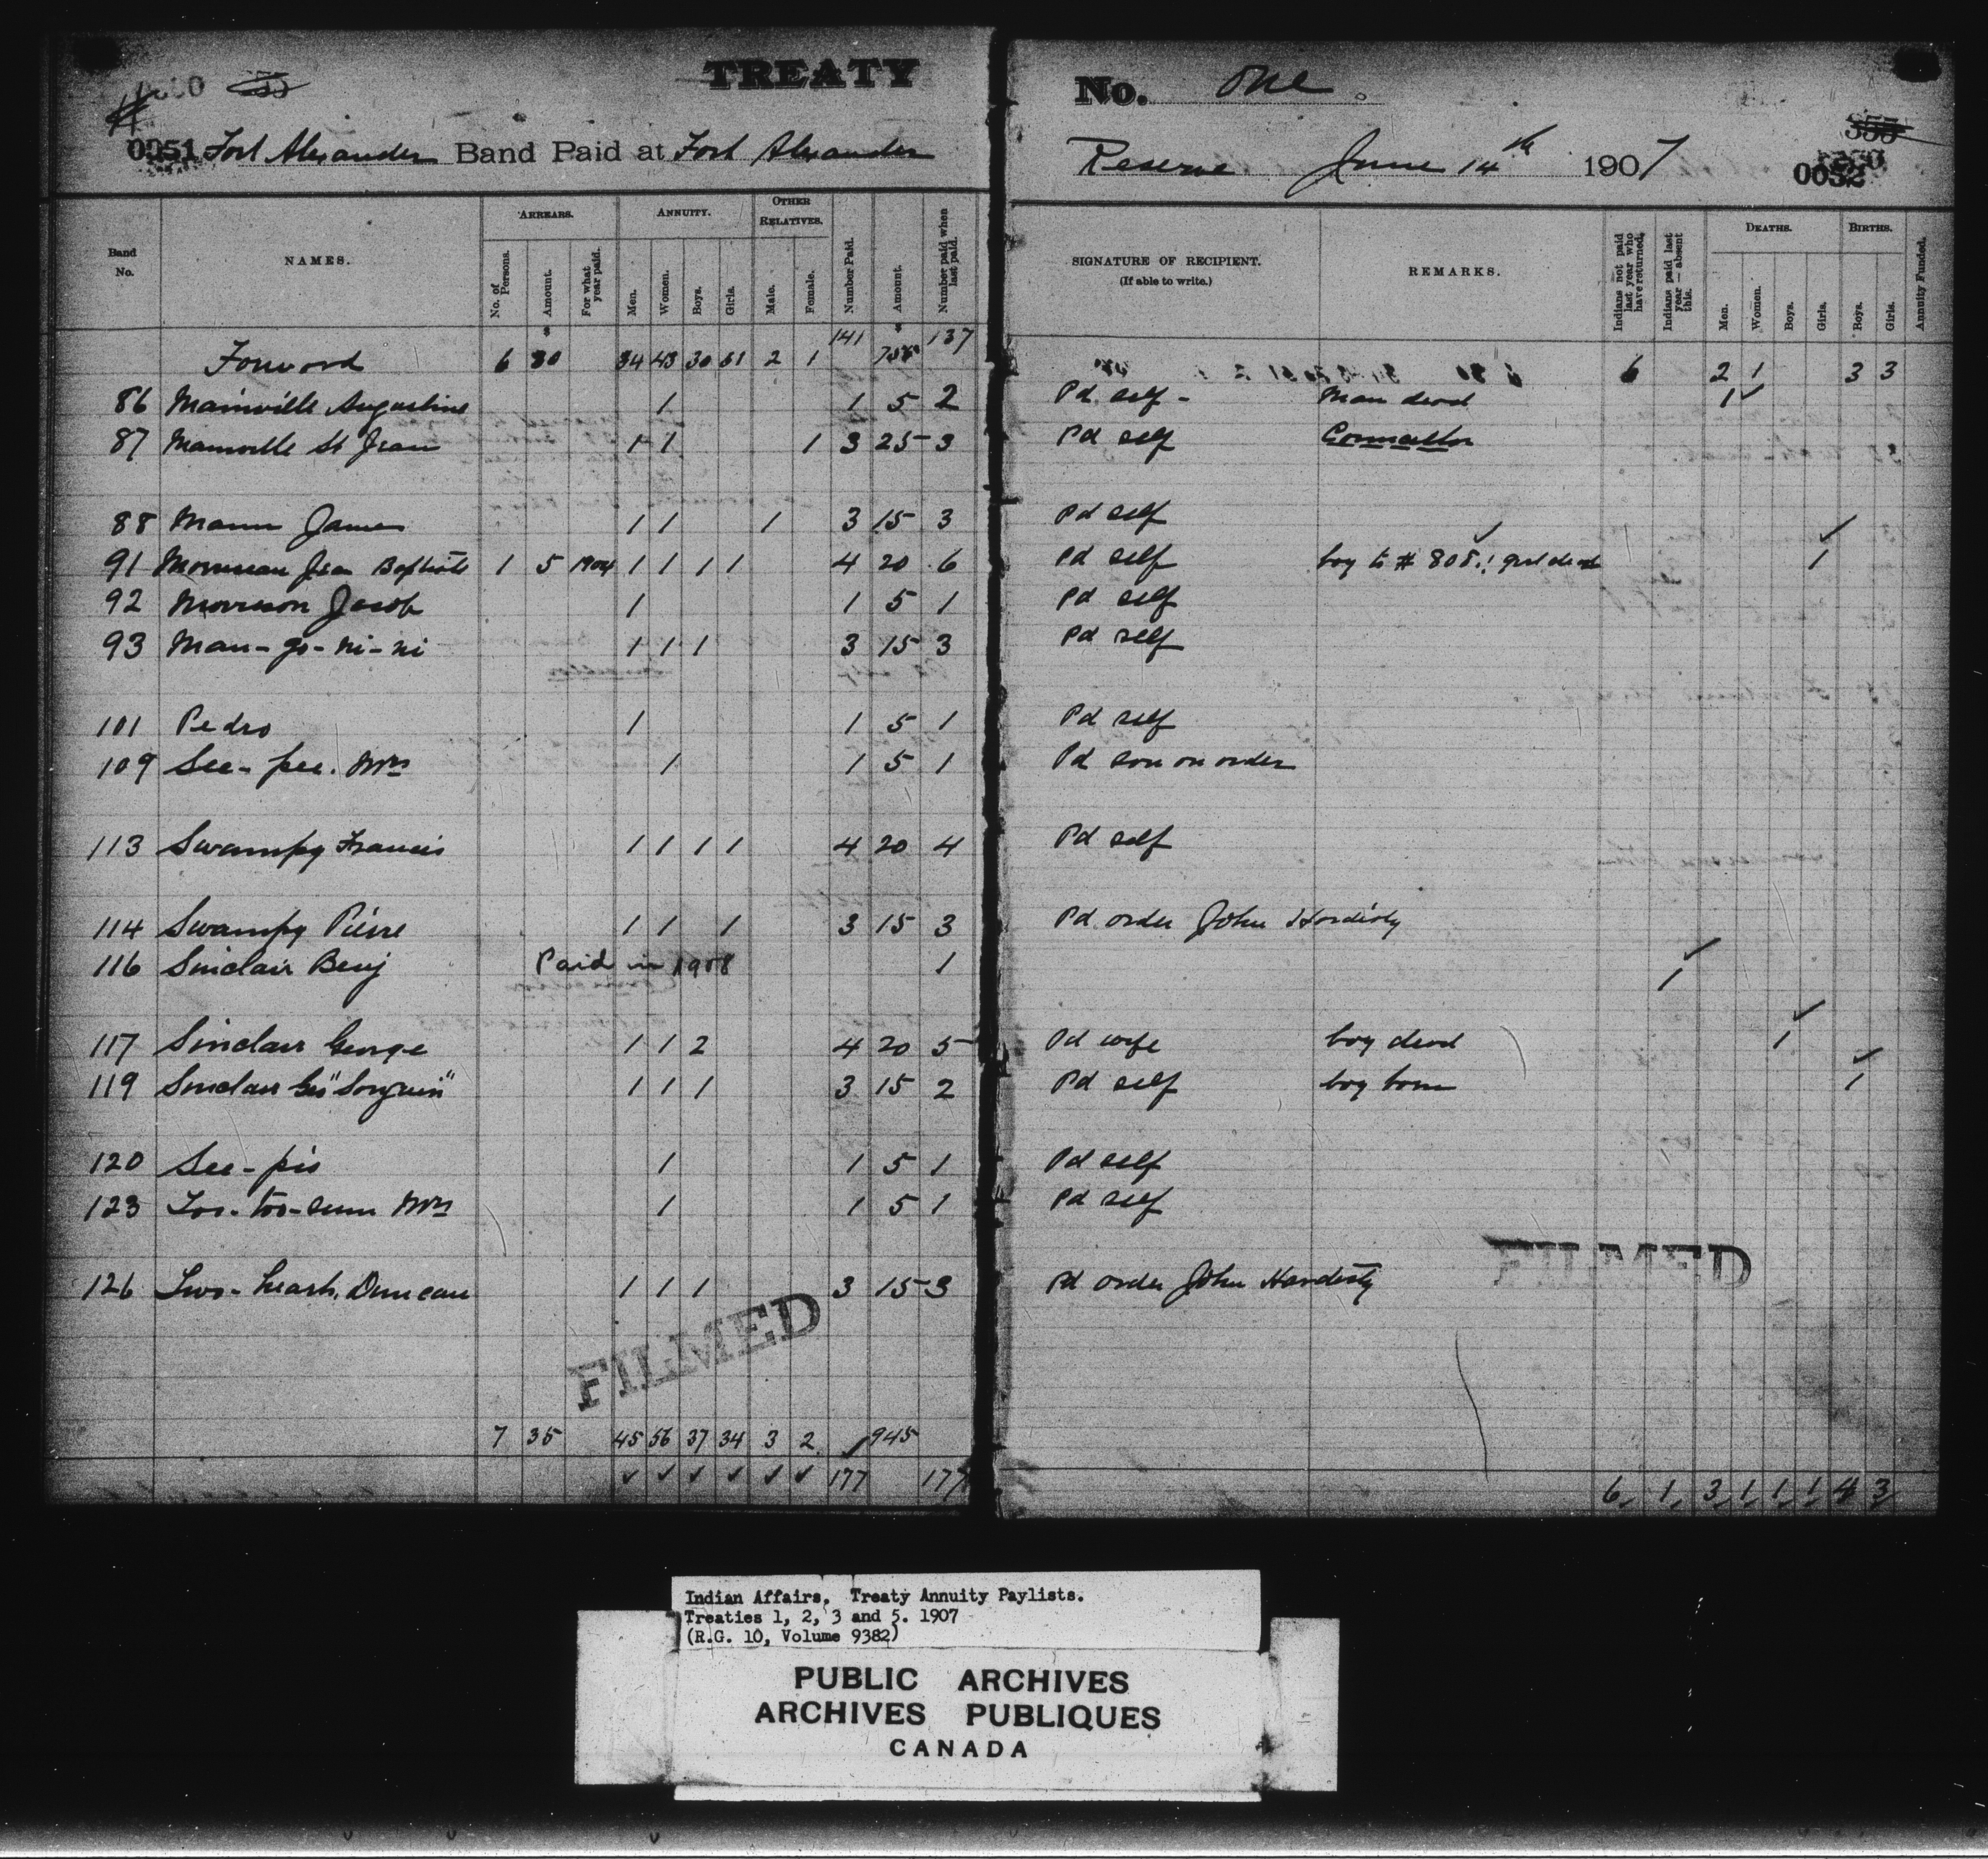 TREATY No. One
0051 Fort Alexander Band Paid at Fort Alexander Reserve June 14th 1907 0052
Band No. NAMES. ARREARS. No. of Persons. Amount. For what year paid. ANNUITY. Men. Women. Boys. Girls. OTHER RELATIVES. Male. Female. Number Paid. Amount. Number paid when last paid. SIGNATURE OF RECIPIENT. (If able to write.) REMARKS. Indians not paid last year who have returned. Indians paid last year—absent this. DEATHS. Men. Women. Boys. Girls. BIRTHS. Boys. Girls. Annuity Funded.
Forword 6 30 34 2 1 141 137 6 2 1 3 3
86 Mainville Augustine 1 1 5 2 Pd self - Man dead 1 ✓
87 Mainville St Jean 1 1 1 3 25 3 Pd self Councillor
88 Mann James 1 1 1 3 15 3 Pd self
91 Morrisseau Jean Baptiste 1 5 1904 1 1 1 1 4 20 6 Pd self boy to # 808. 1 girl dead 1
92 Morrison Jacob 1 1 5 1 Pd self
93 Man-go-ni-ni 1 1 1 3 15 3 Pd self
101 Pedro 1 1 5 1 Pd self
109 See-pee. Mrs 1 1 5 1 Pd son on order
113 Swampy Francis 1 1 1 1 4 20 4 Pd self
114 Swampy Pierre 1 1 1 3 15 3 Pd order John Hardisty
116 Sinclair Benj Paid in 1908 1 1
117 Sinclair George 1 1 2 4 20 5 Pd wife boy dead 1
119 Sinclair Geo 1 1 1 3 15 2 Pd self boy born 1
120 See-pis 1 1 5 1 Pd self
123 Mrs 1 1 5 1 Pd self
126 Two-hearts, Duncan 1 1 1 3 15 3 Pd order John Hardisty
FILMED
FILMED
7 35 45 56 37 34 3 2 945
✓ ✓ ✓ ✓ ✓ ✓ 177 177 6 1 3 1 1 1 4 3
Indian Affairs. Treaty Annuity Paylists.
Treaties 1, 2, 3 and 5. 1907
(R.G. 10, Volume 9382)
PUBLIC ARCHIVES
ARCHIVES PUBLIQUES
CANADA